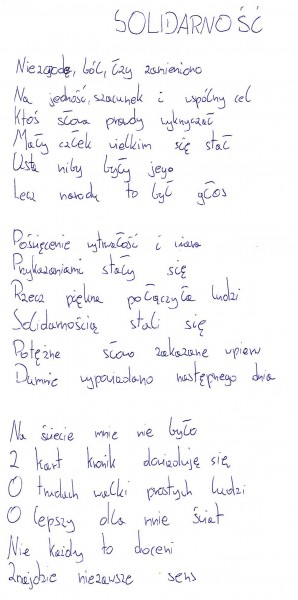 SOLIDARNOŚĆ
Niezgodę, ból, łzy zamieniono
Na jedność, szacunek i wspólny cel
Ktoś słowa prawdy wykrzyczał
Mały człek wielkim się stał
Usta niby były jego
Lecz narodu to był głos
Poświęcenie wytrwałość i wiara
Przykazaniami stały się
Rzecz piękna połączyła ludzi
Solidarnością stali się
Potężne słowo zakazane wpierw
Dumnie wypowiadano następnego dnia
Na świecie mnie nie było
Z kart kronik dowiaduję się
O trudach walki prostych ludzi
O lepszy dla mnie świat
Nie każdy to doceni
Znajdzie niezawsze sens